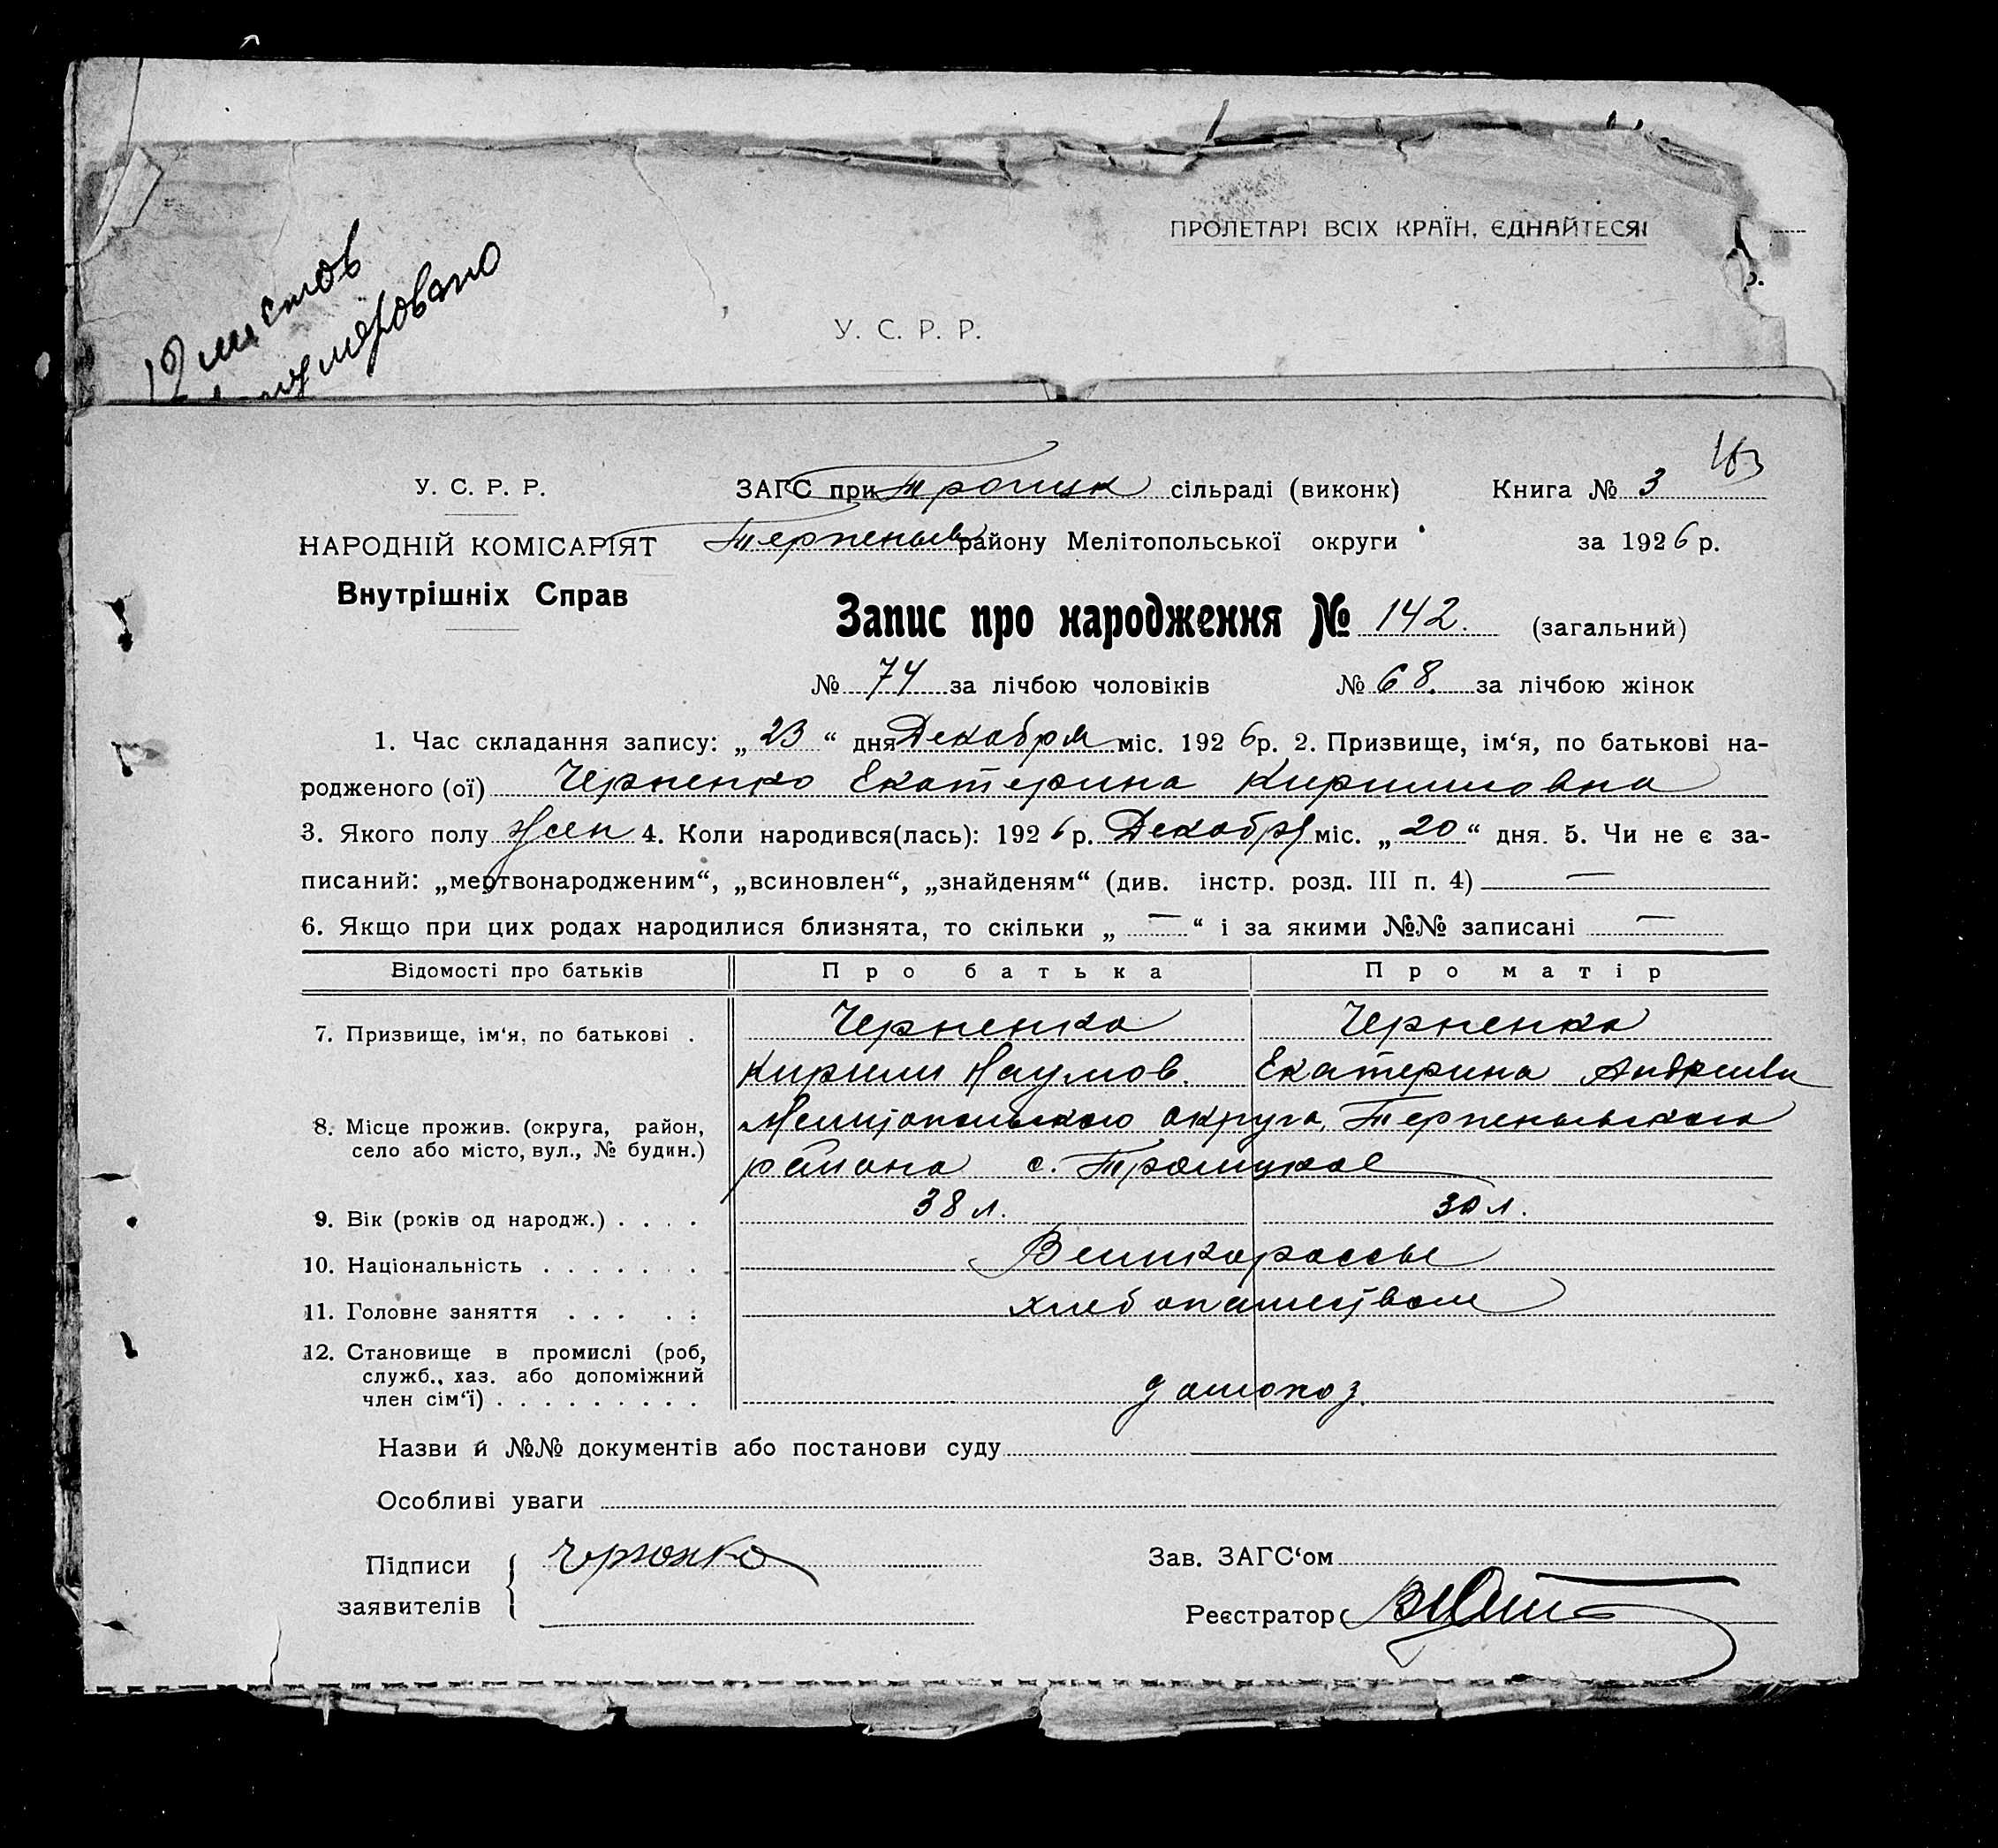 листов
ПРОЛЕТАРІ ВСІХ КРАЇН, ЄДНАЙТЕСЯ!
У. С. Р. Р.
163
У. С. Р. Р. ЗАГС при Троицк сільраді (виконк) Книга № 3
НАРОДНІЙ КОМІСАРІЯТ Терпеньев району Мелітопольської округи за 1926 р.
Внутрішніх Справ
Запис про народження № 142. (загальний)
№ 74 за лічбою чоловіків № 68. за лічбою жінок
1. Час складання запису: „23“ дня Декабря міс. 1926 р. 2. Призвище, ім‘я, по батькові на-
родженого (ої) Черненко Екатерина Кирилловна
3. Якого полу жен 4. Коли народився(лась): 1926 р. Декабря міс. „20“ дня. 5. Чи не є за-
писаний: „мертвонародженим“, „всиновлен“, „знайденям“ (див. інстр. розд. III п. 4) —
6. Якщо при цих родах народилися близнята, то скільки „—“ і за якими №№ записані —
Відомості про батьків Про батька Про матір
7. Призвище, ім‘я, по батькові . Черненко Черненко
Кирилл Наумов. Екатерина Андреевн
8. Місце прожив. (округа, район, Мелитопольского округа, Терпеньевского
село або місто, вул., № будин.) района с. Троицкое
9. Вік (років од народж.) . . . . 38 л. 30 л.
10. Національність . . . . . . . Великороссы
11. Головне заняття . . . . . хлебопашеством
12. Становище в промислі (роб,
служб., хаз. або допоміжний
член сім‘ї) . . . . . . . . . домохоз.
Назви й №№ документів або постанови суду
Особливі уваги
Підписи Зав. ЗАГС‘ом
заявителів Реєстратор